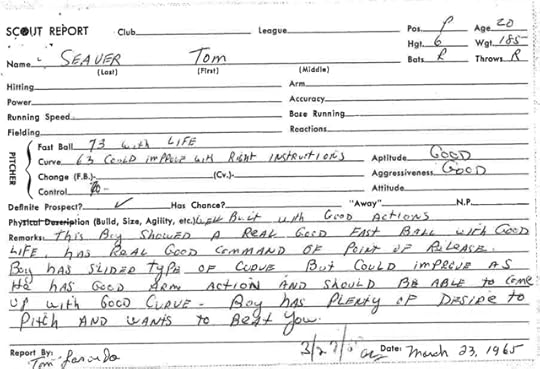 SCOUT REPORT Club League Pos. P Age 20
Hgt. 6 Wgt. 185
Name SEAVER Tom Bats R Throws R
(Last) (First) (Middle)
Hitting Arm
Power Accuracy
Running Speed Base Running
Fielding Reactions
PITCHER
Fast Ball 73 with LIFE
Curve 63 COULD IMPROVE with Right INSTRUCTIONS Aptitude GOOD
Change (F.B.) (Cv.) Aggressiveness GOOD
Control Attitude
Definite Prospect? ✓ Has Chance? "Away" N.P.
Physical Description (Build, Size, Agility, etc.) WELL Built with GOOD ACTIONS
Remarks: This Boy SHOWED A REAL GOOD FAST BALL with GOOD
LIFE, HAS REAL GOOD COMMAND OF POINT OF RELEASE.
Boy HAS SLIDER TYPE OF CURVE But COULD IMPROVE AS
HE HAS GOOD ARM ACTION AND SHOULD BE ABLE to COME
UP with GOOD CURVE - Boy HAS PLENTY OF DESIRE to
Pitch AND WANTS to BEAT You.
Report By: Tom Lasorda Date: March 23, 1965